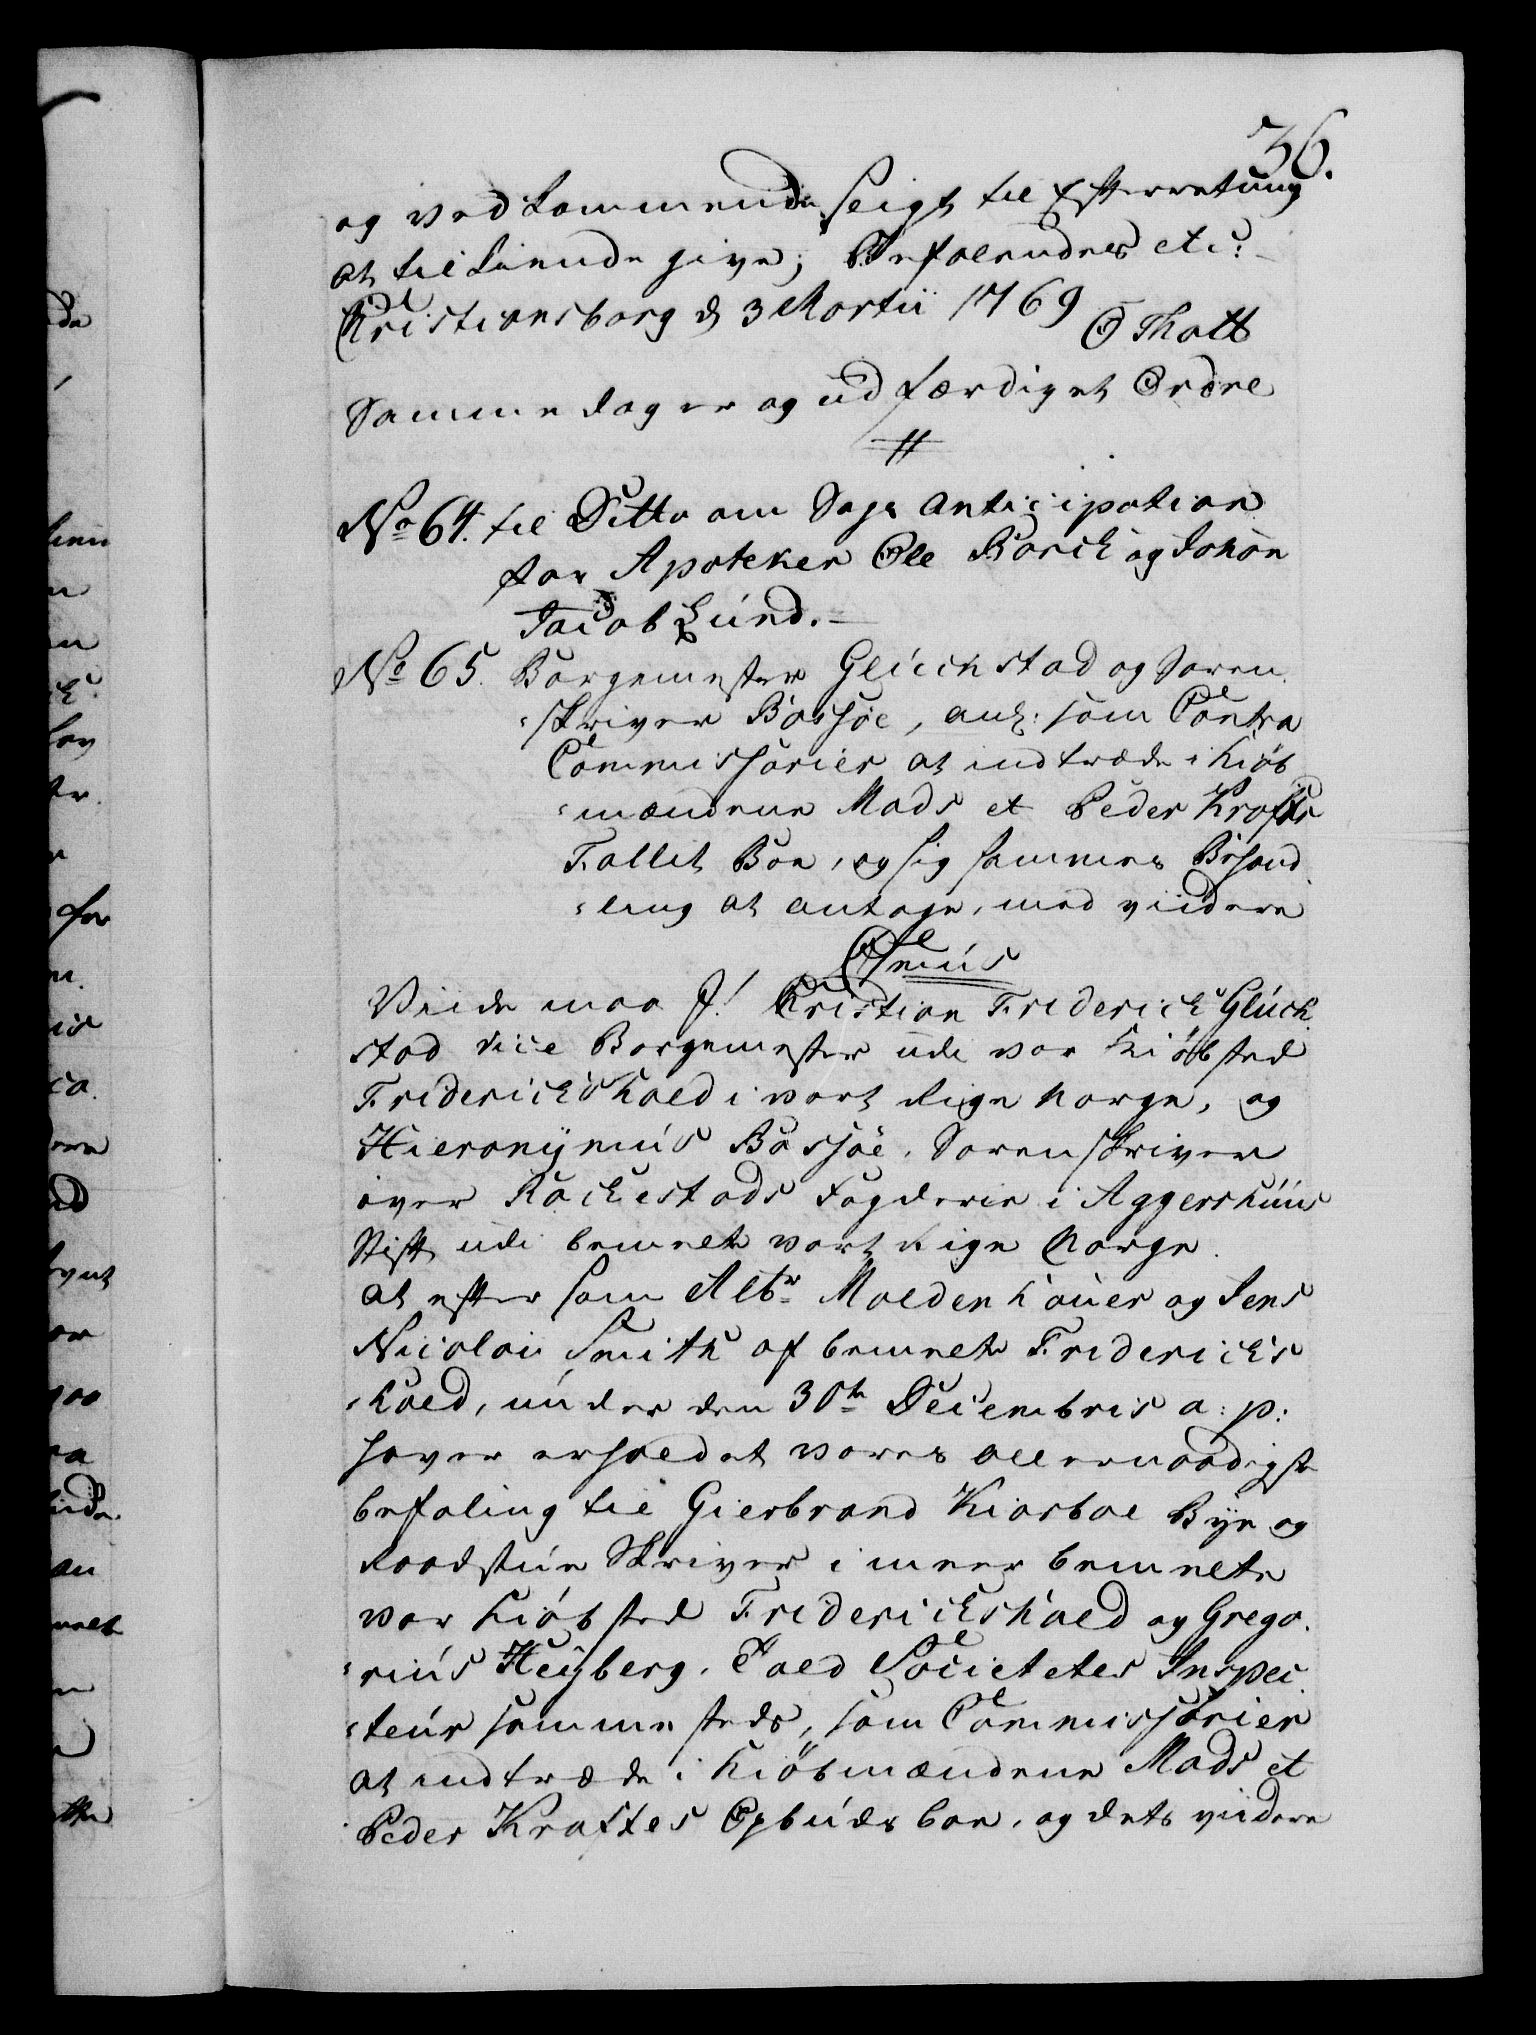 36.
og Vedkommende sligt til Efterretning
at tilkiende give; Befalendes etc:
Christiansborg d 3 Martii 1769
O Thott
Samme dag er og udfærdiget Ordre
No 64. til Ditto om Sags Anticipation
for Apoteker Ole Borch og Johan
Jacob Lund.
No 65. Borgemester Glückstad og Soren
skriver Bassøe, ang: som Contra
Commissarier at indtræde i Kiøb
mændene Mads et Peder Krafts
Fallit Boe, og sig sammes Behand
ling at antage, med viidere
Viide maa I! Christian Friderich Glück
stad vice Borgemester udi vor Kiöbsted
Friderichshald i vort Rige Norge, og
Hieronÿmus Bassøe, Sorenskriver
over Rackestads Fogderie i Aggershuus
Stift udi bemelte vort Rige Norge.
at efter som Albr Moldenhauer og Jens
Nicolai Smith af bemelte Friderichs
hald, under den 30te Decembris a: p:
haver erholdet vores allernaadigste
befaling til Gierbrand Kiorboe Bÿe og
Raadstue Skriver i meer bemelte
vor Kiöbsted Friderichshald og Grego
rius Heÿberg, Told Societetes Inspec
teur samme steds, som Commissarier
at indtræde i Kiöbmændene Mads et
Peder Kraftes Opbuds boe, og dets viidere